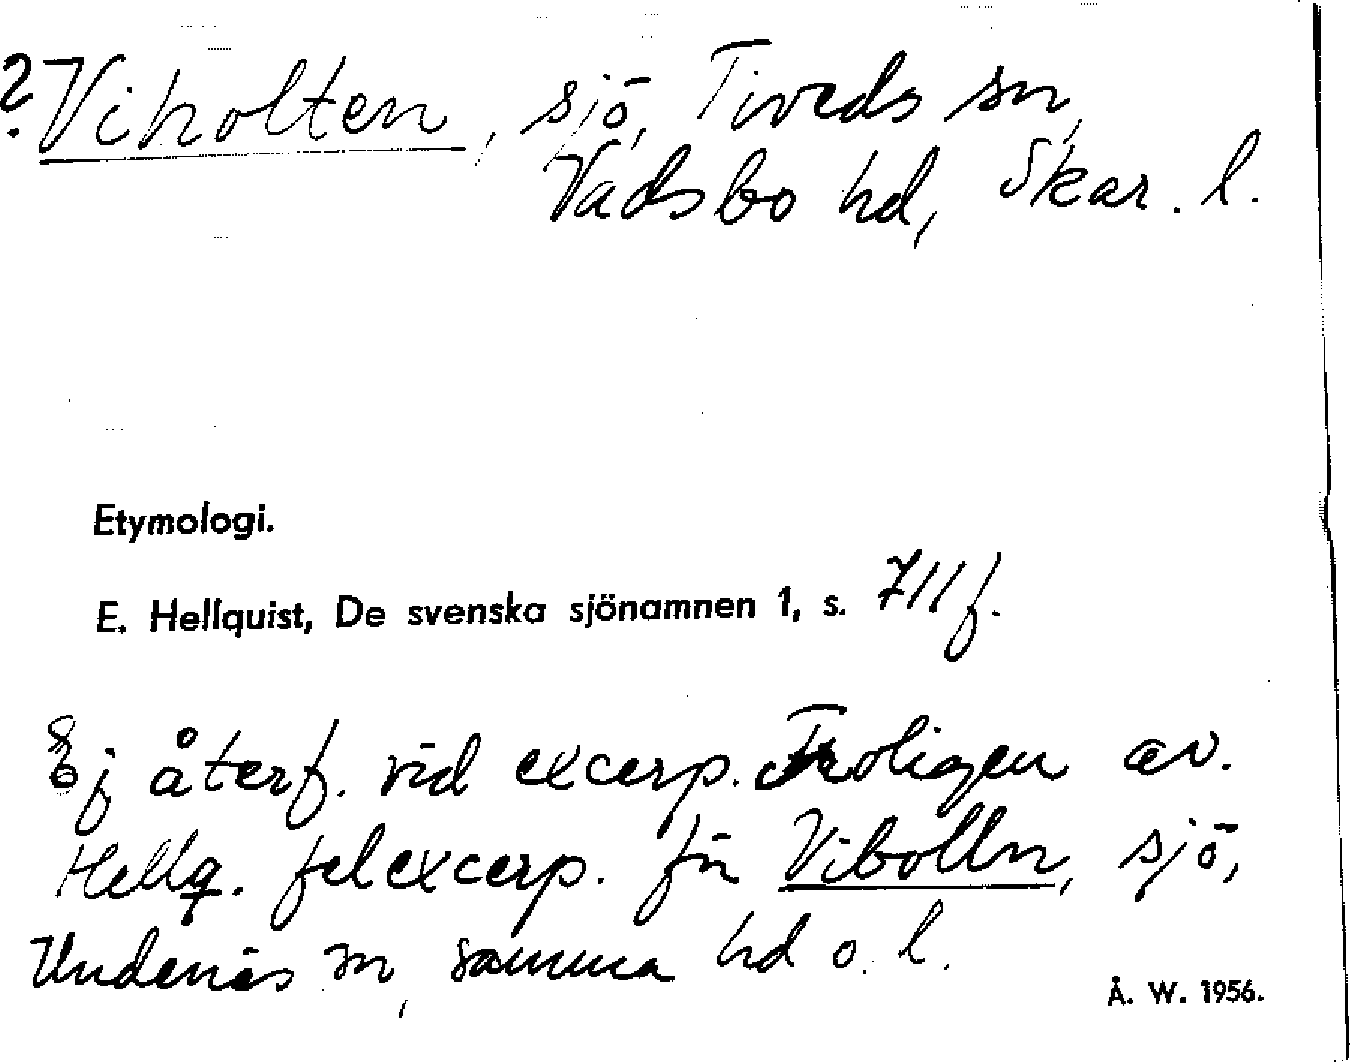 ? Viholten, sjö, Tiveds sn,
Vadsbo hd, Skar. l.
Etymologi.
E. Hellquist, De svenska sjönamnen 1, s. 711 f.
Ej återf. vid excerp. Troligen av
Hellq. felexcerp. för Vibolln, sjö,
Undenäs sn, samma hd o. l.
Å. W. 1956.